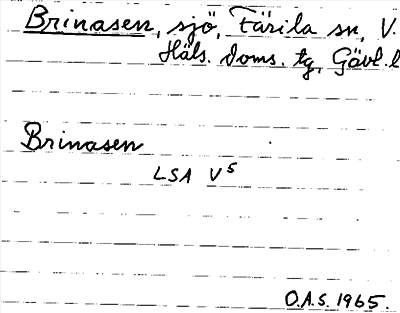 Brinasen, sjö, Färila sn, V.
Häls. doms. tg, Gävl. l
Brinasen
LSA V⁵
O.A.S. 1965.